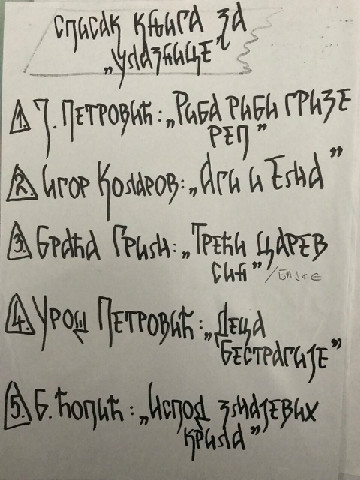 списак књига за
„Улазнице“
1. Ј. Петровић: „Риба риби гризе
реп”
2. Игор Коларов: „Аги и Ема”
3. Браћа Грим: „Трећи царев
син” /бајке
4. Урош Петровић: „Деца
Бестрагије”
5. Б. Ћопић: „Испод змајевих
крила”